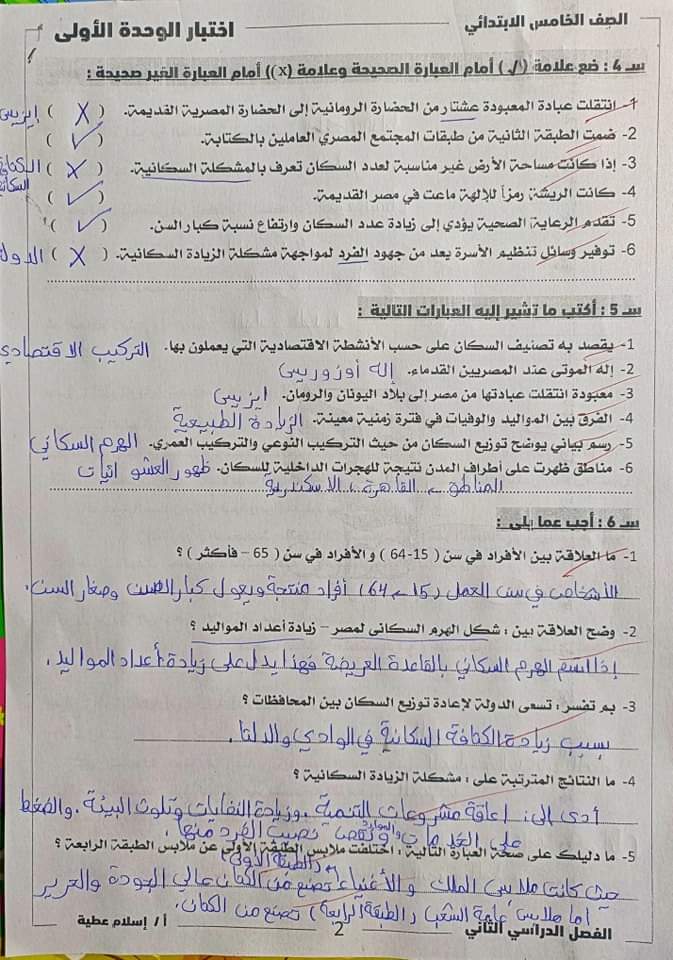 الصف الخامس الابتدائي
اختبار الوحدة الأولى
سـ 4 : ضع علامة (√) أمام العبارة الصحيحة وعلامة (x)) أمام العبارة الغير صحيحة :
1- انتقلت عبادة المعبودة عشتار من الحضارة الرومانية إلى الحضارة المصرية القديمة. ( X )
2- ضمت الطبقة الثانية من طبقات المجتمع المصري العاملين بالكتابة. ( ✓ )
3- إذا كانت مساحة الأرض غير مناسبة لعدد السكان تعرف بالمشكلة السكانية. ( X )
4- كانت الريشة رمزاً للإلهة ماعت في مصر القديمة. ( ✓ )
5- تقدم الرعاية الصحية يؤدي إلى زيادة عدد السكان وارتفاع نسبة كبار السن. ( ✓ )
6- توفير وسائل تنظيم الأسرة يعد من جهود الفرد لمواجهة مشكلة الزيادة السكانية. ( X )
سـ 5 : أكتب ما تشير إليه العبارات التالية :
1- يقصد به تصنيف السكان على حسب الأنشطة الاقتصادية التي يعملون بها. التركيب الاقتصادي
2- إله الموتى عند المصريين القدماء. إله أوزوريس
3- معبودة انتقلت عبادتها من مصر إلى بلاد اليونان والرومان. ايزيس
4- الفرق بين المواليد والوفيات في فترة زمنية معينة. الزيادة الطبيعية
5- رسم بياني يوضح توزيع السكان من حيث التركيب النوعي والتركيب العمري. الهرم السكاني
6- مناطق ظهرت على أطراف المدن نتيجة للهجرات الداخلية للسكان. ظهور العشوائيات
المناطق القاهرة ، الاسكندرية
سـ 6 : أجب عما يلى :
1- ما العلاقة بين الأفراد في سن ( 15-64 ) و الأفراد في سن ( 65 – فأكثر ) ؟
الأشخاص في سن العمل (15 64) أفراد منتجة ويعول كبار السن وصغار السن.
2- وضح العلاقة بين : شكل الهرم السكانى لمصر – زيادة أعداد المواليد ؟
إذا اتسم الهرم السكاني بالقاعدة العريضة فهذا يدل على زيادة أعداد المواليد.
3- بم تفسر : تسعى الدولة لإعادة توزيع السكان بين المحافظات ؟
بسبب زيادة الكثافة السكانية في الوادي والدلتا.
4- ما النتائج المترتبة على : مشكلة الزيادة السكانية ؟
أدى الى: اعاقة مشروعات التنمية ، وزيادة النفايات وتلوث البيئة . والضغط
على الخدمات والموارد ونقص نصيب الفرد منها.
5- ما دليلك على صحة العبارة التالية : اختلفت ملابس الطبقة الأولى عن ملابس الطبقة الرابعة ؟
(الطبقة الأولى)
حيث كانت ملابس الملك والأغنياء تصنع من الكتان عالي الجودة والحرير
أما ملابس عامة الشعب (الطبقة الرابعة) تصنع من الكتان.
الفصل الدراسي الثاني
2
أ / إسلام عطية